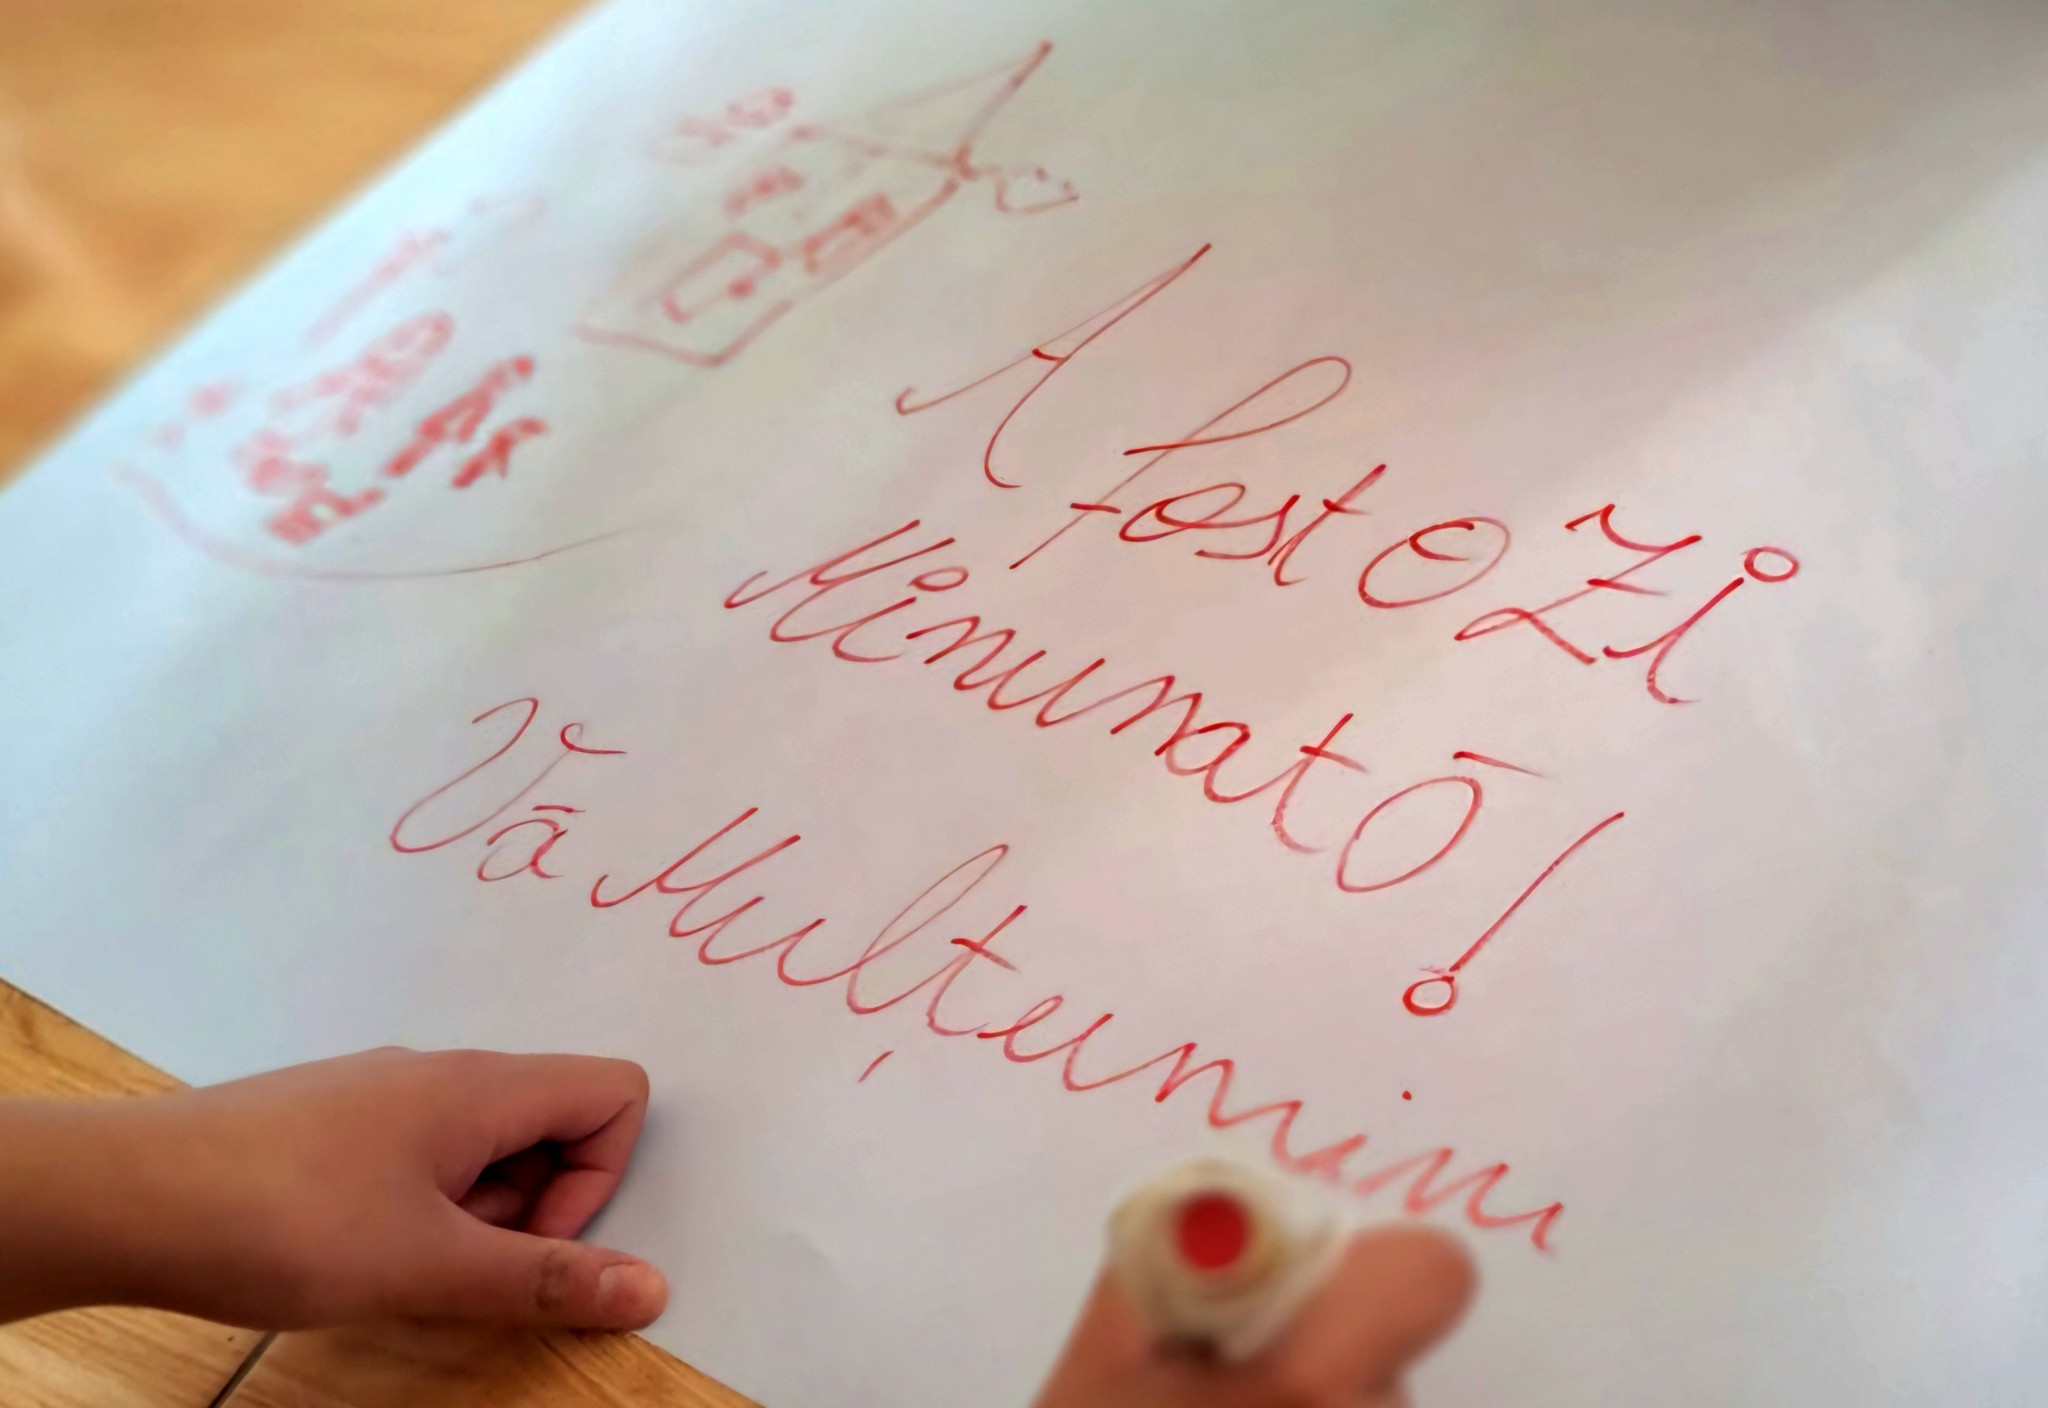 A fost O Zi
Minunată!
Vă Mulțumim